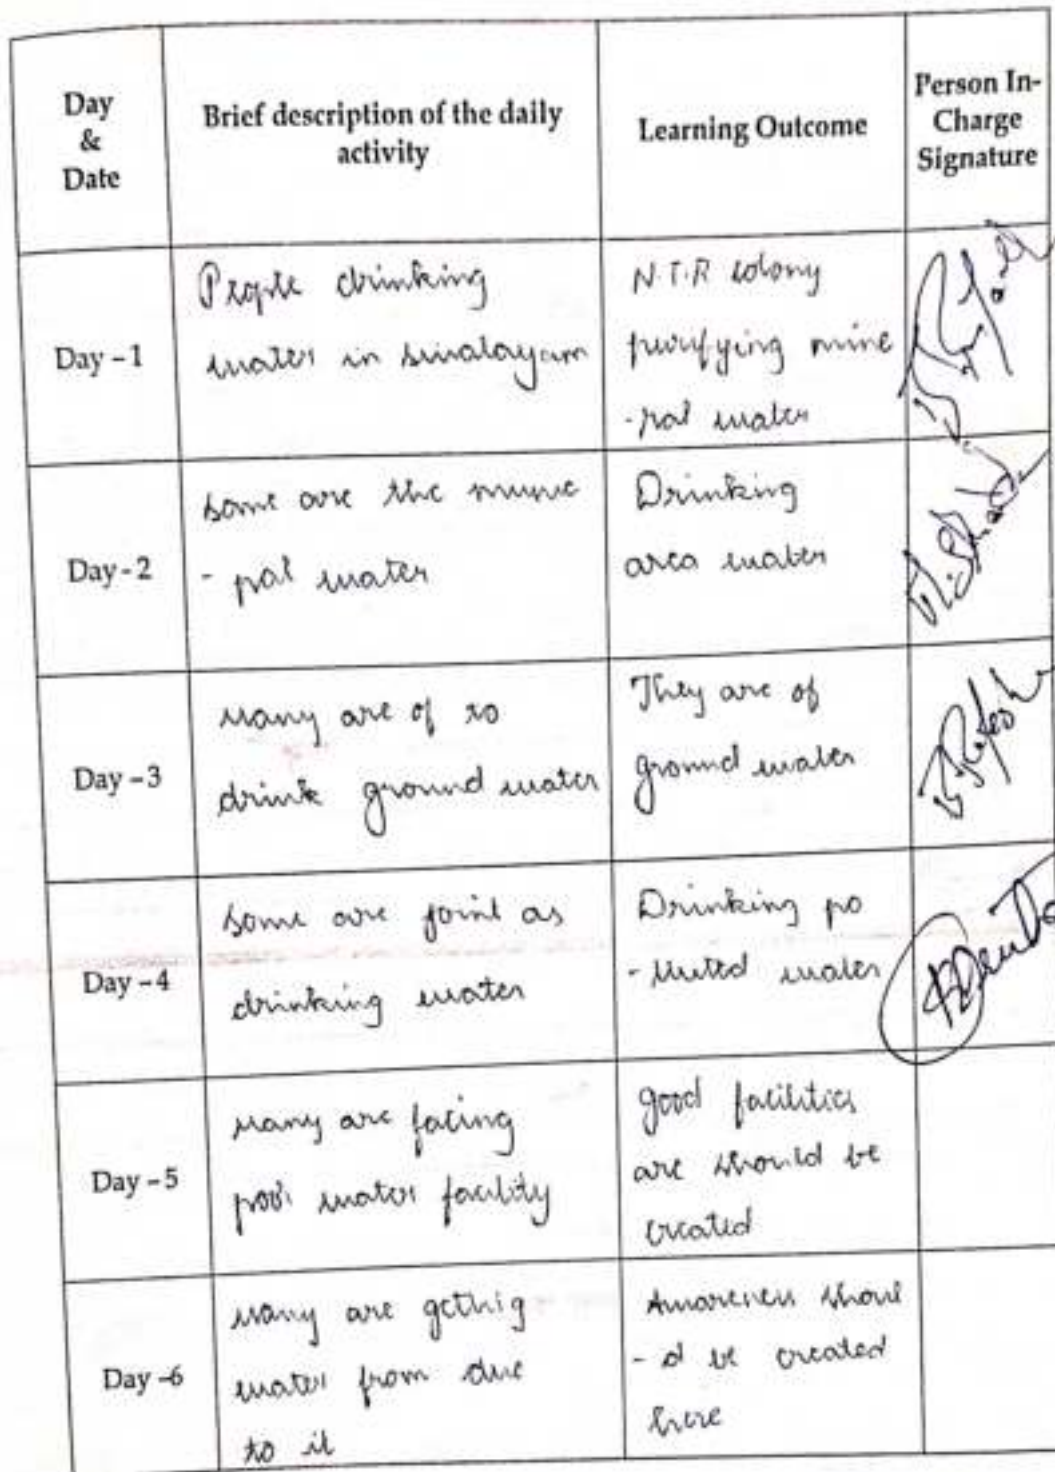 Day
&
Date
Brief description of the daily
activity
Learning Outcome
Person In-
Charge
Signature
Day - 1
People drinking
water in sivalayam
N.T.R colony
purifying mine
-ral water
Day - 2
some are the munic
- pal water
Drinking
area water
Day - 3
many are of to
drink ground water
They are of
ground water
Day - 4
some are joint as
drinking water
Drinking po
- lluted water
Day - 5
many are facing
poor water facility
good facilities
are should be
created
Day - 6
many are getting
water from due
to it
Awareness shoul
- d be created
here